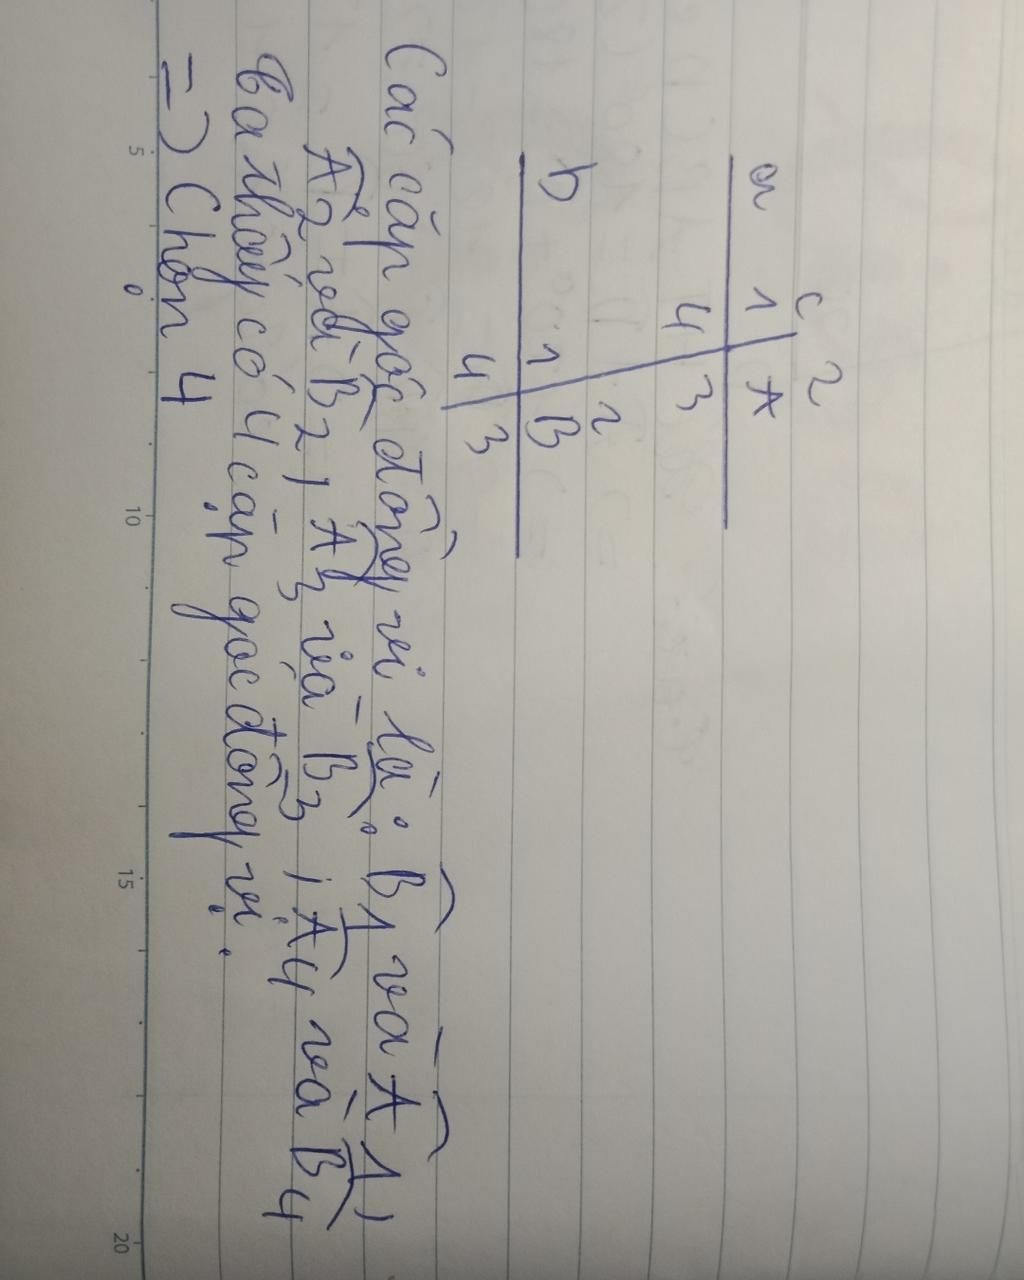 c
a 1 2
A
4 3
b 1 2
B
4 3
Các cặp góc đồng vị là: B̂1 và Â1,
Â2 và B̂2, Â3 và B̂3, Â4 và B̂4
Ta thấy có 4 cặp góc đồng vị.
=> Chọn 4
5 10 15 20